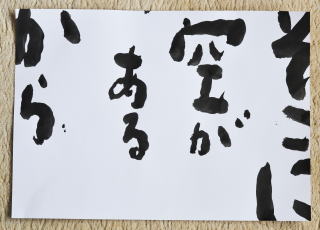 そこに
空が
ある
から